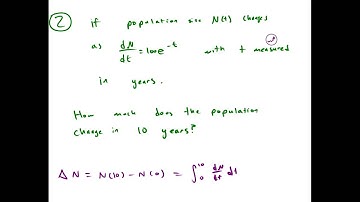 ② if population size N(t) changes
as dN/dt = 100e^-t with t measured
in years.
How much does the population
change in 10 years?
Δ N = N(10) - N(0) = ∫₀¹⁰ dN/dt dt